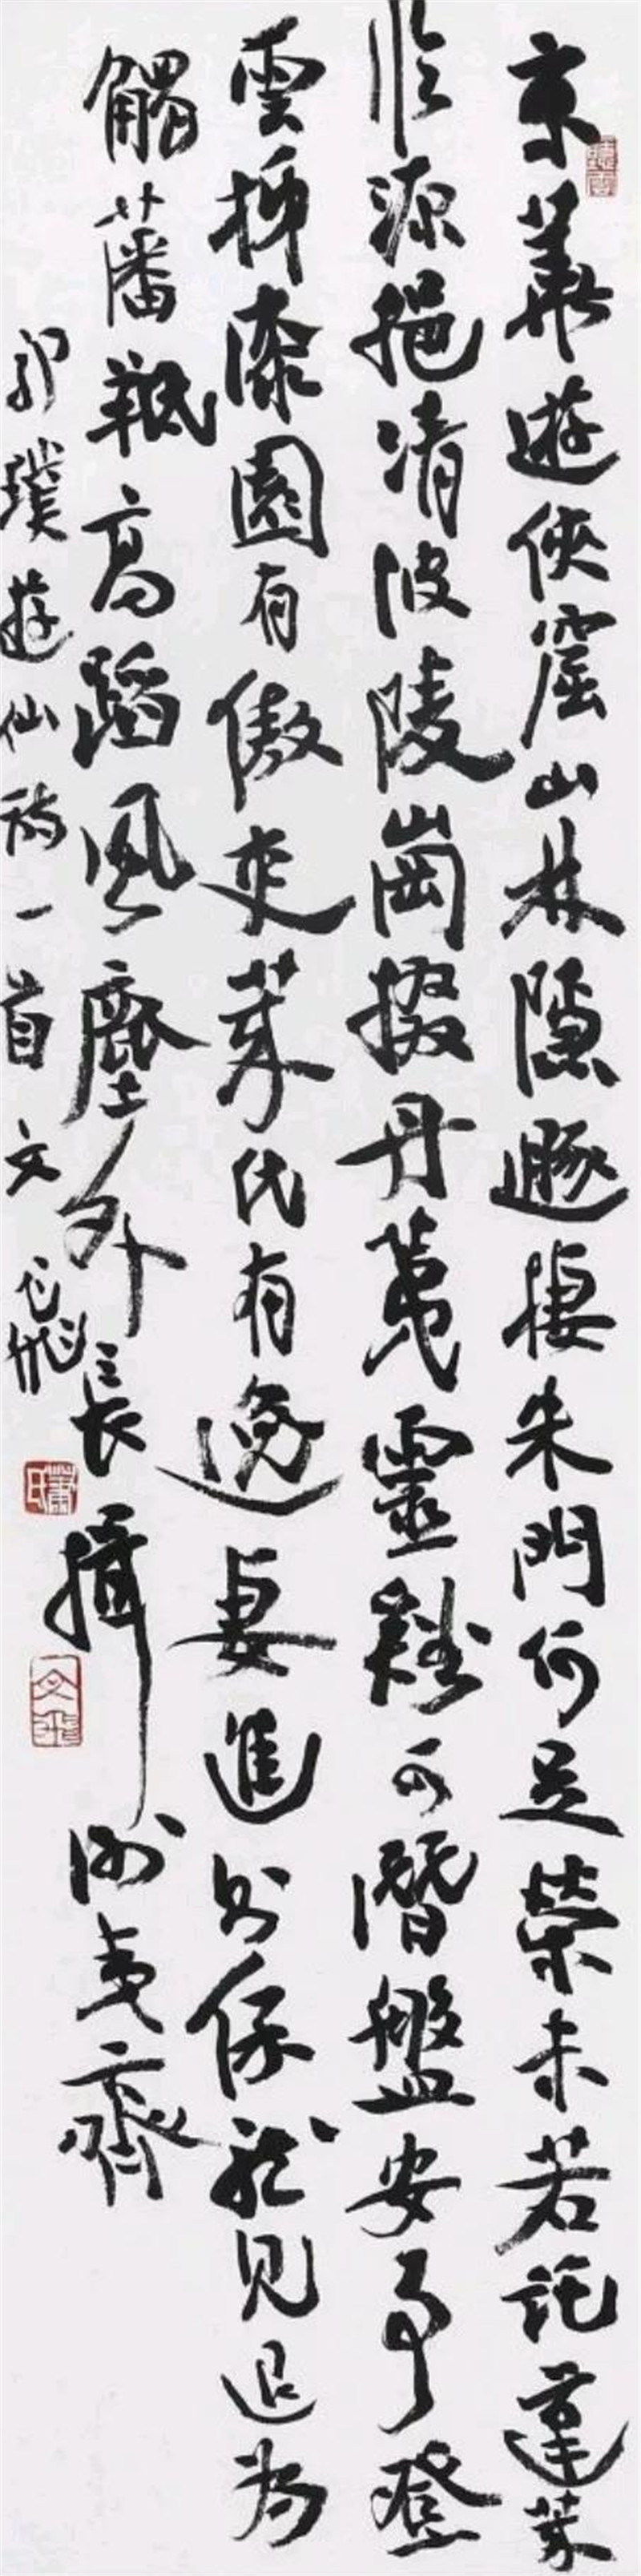 京華遊俠窟山林隱遯棲朱門何足榮未若託蓬萊
臨源挹清波陵崗掇丹荑靈谿可潛盤安事登
雲梯漆園有傲吏萊氏有逸妻進則保龍見退為
觸藩羝高蹈風塵外長揖謝夷齊
郭璞遊仙詩一首文飛
蕭氏
文飛